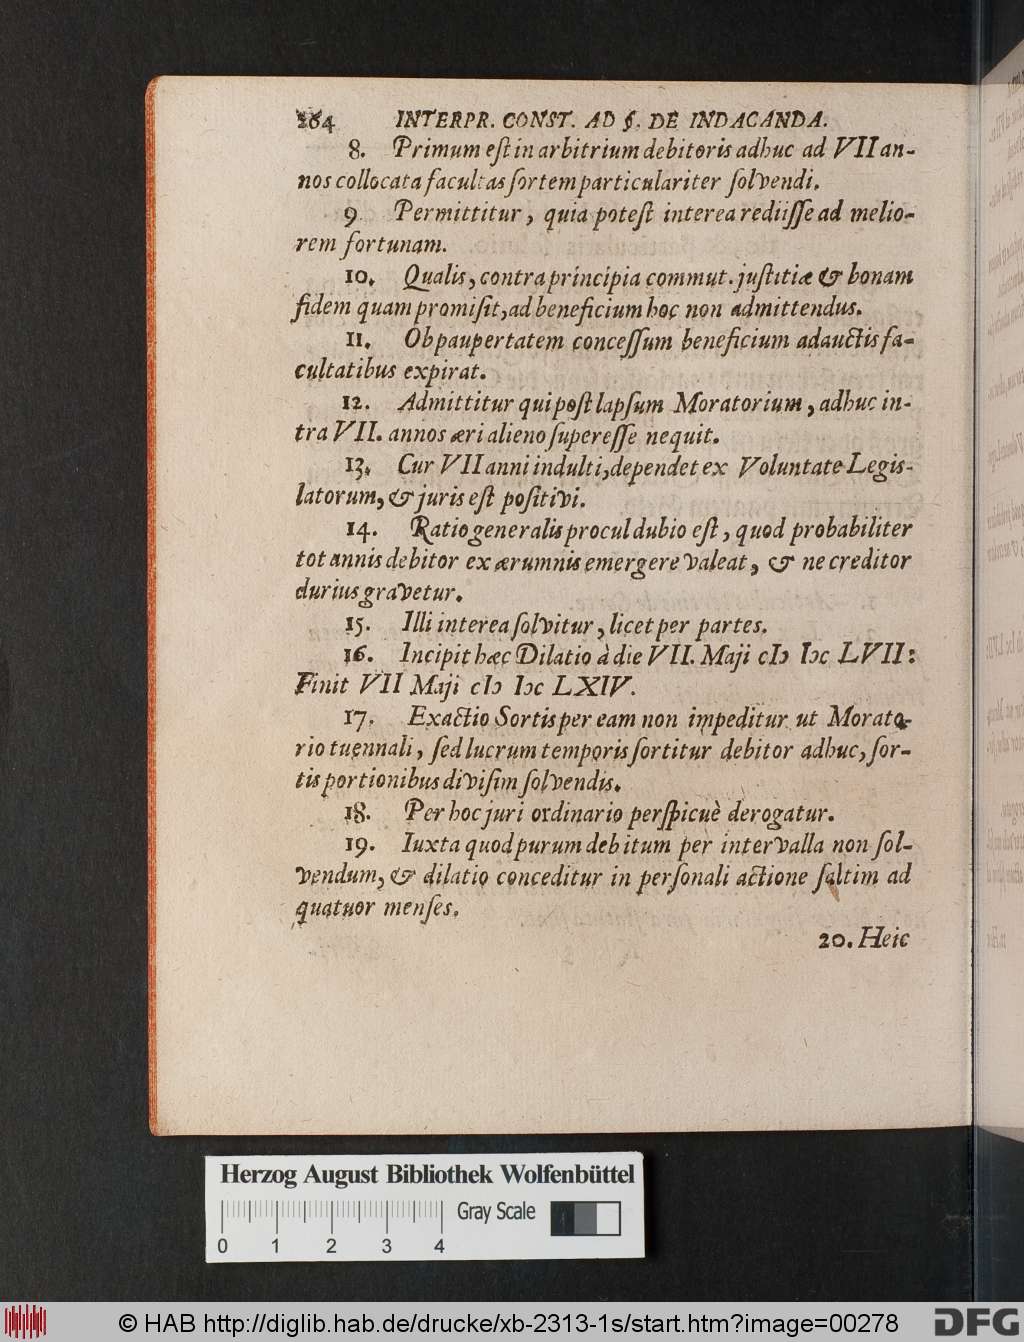 264 INTERPR. CONST. AD §. DE INDAGANDA.
8. Primum eſt in arbitrium debitoris adhuc ad VII an-
nos collocata facultas ſortem particulariter ſolvendi.
9 Permittitur, quia poteſt interea rediiſſe ad melio-
rem fortunam.
10. Qualis, contra principia commut. juſtitiæ & bonam
fidem quam promiſit, ad beneficium hoc non admittendus.
11. Ob paupertatem conceſſum beneficium adauctis fa-
cultatibus expirat.
12. Admittitur qui poſt lapſum Moratorium, adhuc in-
tra VII. annos æri alieno ſupereſſe nequit.
13. Cur VII anni indulti, dependet ex Voluntate Legis-
latorum, & juris eſt poſitivi.
14. Ratio generalis procul dubio eſt, quod probabiliter
tot annis debitor ex ærumnis emergere valeat, & ne creditor
durius gravetur.
15. Illi interea ſolvitur, licet per partes.
16. Incipit hæc Dilatio à die VII. Maji cIↄ Iↄc LVII:
Finit VII Maji cIↄ Iↄc LXIV.
17. Exactio Sortis per eam non impeditur ut Morato-
rio tuennali, ſed lucrum temporis ſortitur debitor adhuc, ſor-
tis portionibus diviſim ſolvendis.
18. Per hoc juri ordinario perſpicuè derogatur.
19. Iuxta quod purum debitum per intervalla non ſol-
vendum, & dilatio conceditur in perſonali actione ſaltim ad
quatuor menſes.
20. Heic
Herzog August Bibliothek Wolfenbüttel
Gray Scale
0 1 2 3 4
© HAB http://diglib.hab.de/drucke/xb-2313-1s/start.htm?image=00278
DFG